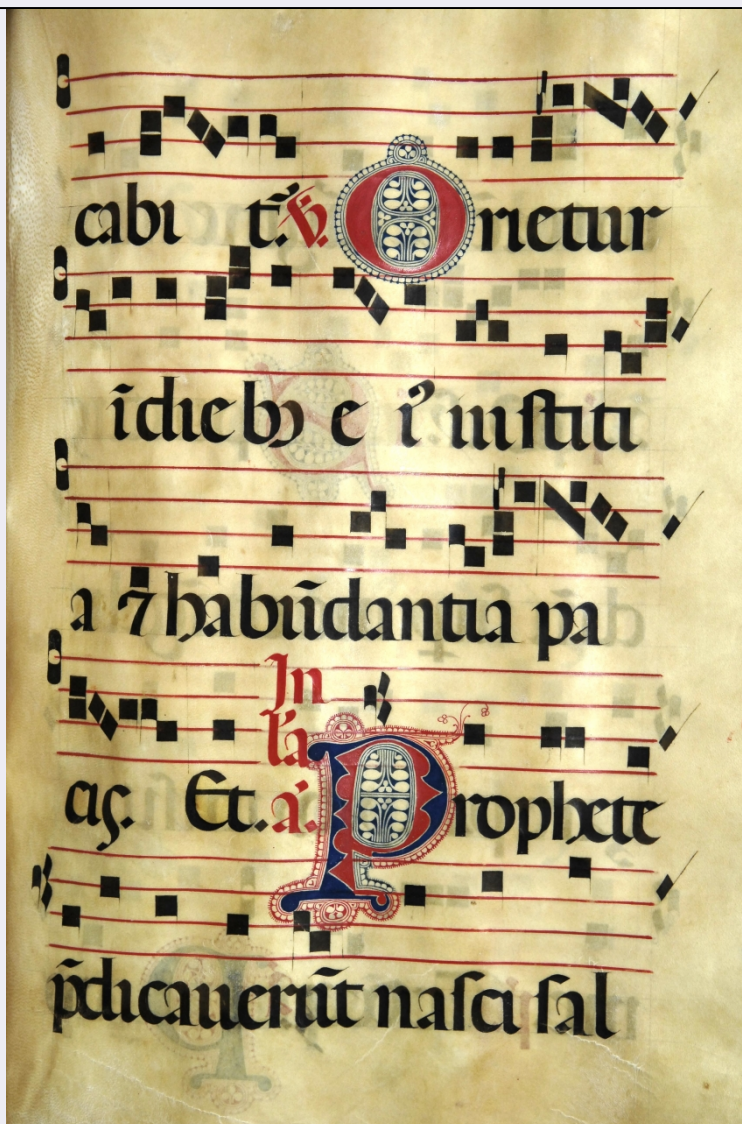 cabi t̄. ℣. Orietur
ī dieb⁹ eiꝰ iustiti
a ⁊ habūdantia pa
cis. Et. In la. a̅. Prophete
p̄dicauerūt nasci sal